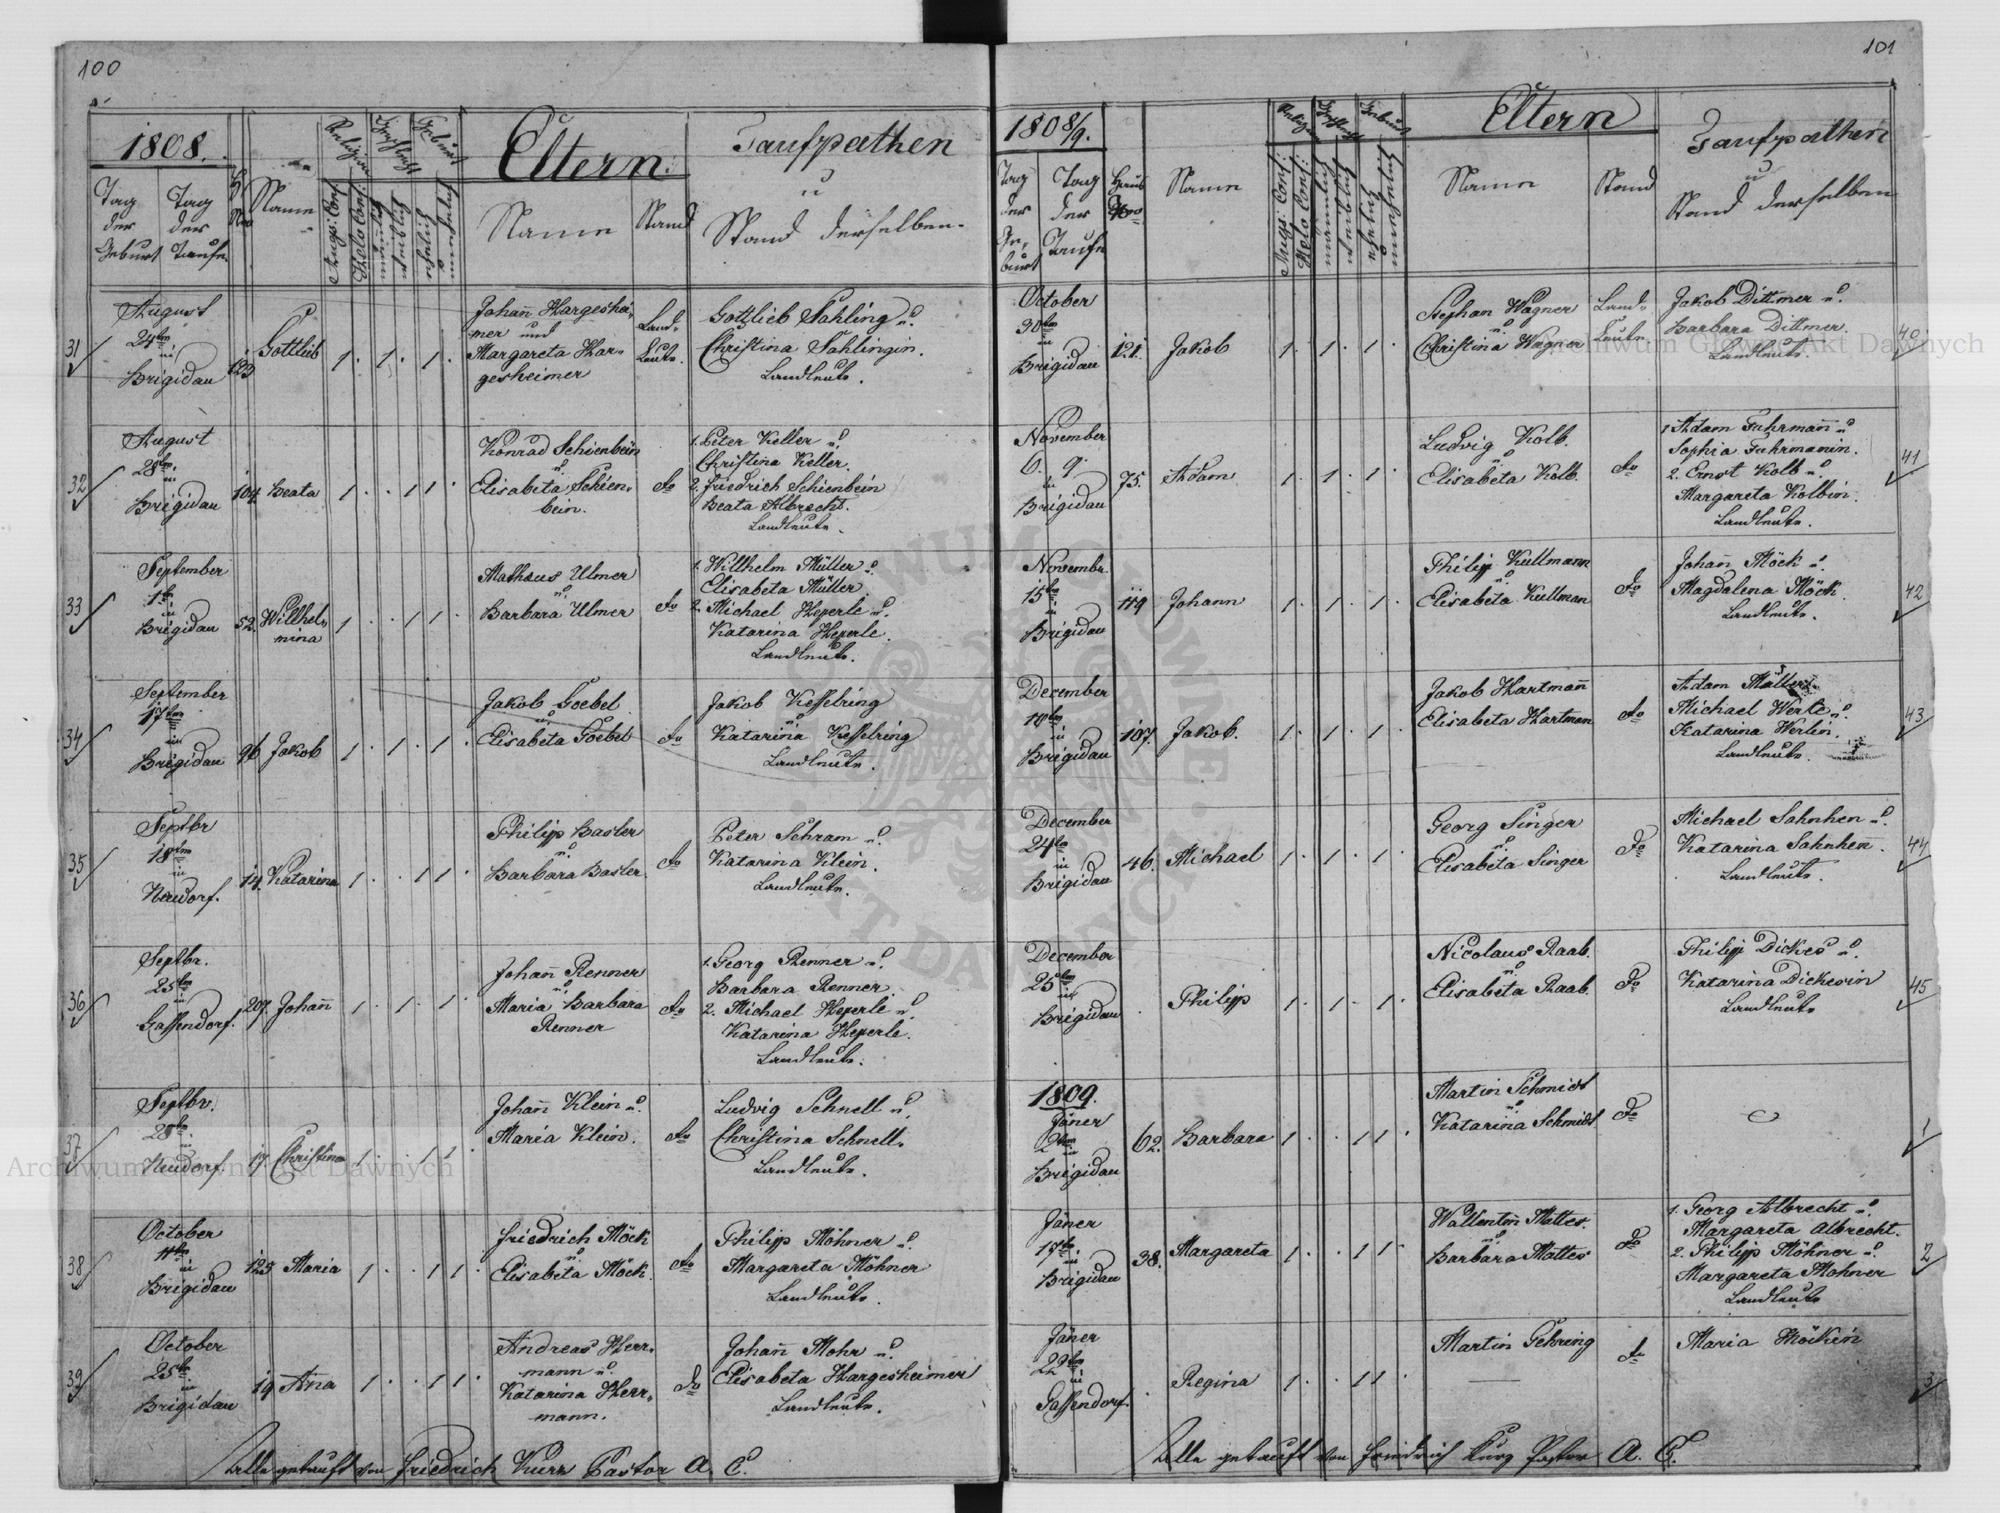 100
1808.
Eltern
Taufpathen
u
Stand derselben
Tag der Geburt
Tag der Taufe
Name
Religion
Geschlecht
Geburt
Augs: Conf.
Helv. Conf.
Name
Stand
31
August
24ten
in
Brigidau
123
Gottlieb
1. 1. 1.
Johañ Hargeshei-
mer und
Margareta Har-
gesheimer
Land-
leute.
Gottlieb Sahling u.
Christina Sahlingin.
Landleute.
32
August
28ten
in
Brigidau
104
Beata
1 . . 1 1 .
Konrad Schienbein
u.
Elisabeta Schien-
bein.
do
1. Peter Keller u.
Christina Keller.
2. Friedrich Schienbein
Beata Albrecht.
Landleute.
33
September
1ten
in
Brigidau
52.
Willhel-
mina
1 . . 1 1 .
Matheus Ulmer
u.
Barbara Ulmer
do
1. Willhelm Müller u.
Elisabeta Müller.
2. Michael Heperle u.
Katarina Heperle.
Landleute.
34
September
17ten
in
Brigidau
96
Jakob
1 . 1 . 1 .
Jakob Goebel
u.
Elisabeta Goebel
do
Jakob Kesselring
u.
Katarina Kesselring
Landleute.
35
Septbr
18ten
in
Neudorf.
14.
Katarina
1 . . 1 1 .
Philipp Basler
u.
Barbara Basler.
do
Peter Schram u.
Katarina Klein.
Landleute.
36
Septbr.
25ten
in
Gassendorf.
207.
Johañ
1 . 1 . 1 .
Johañ Renner
u.
Maria Barbara
Renner
do
1. Georg Renner u.
Barbara Renner
2. Michael Heperle u.
Katarina Heperle.
Landleute.
37
Septbr.
28ten
in
Neudorf.
17
Christina
1 . . 1 1 .
Johañ Klein u.
Maria Klein.
do
Ludvig Schnell u.
Christina Schnell.
Landleute.
38
October
11ten
in
Brigidau
125
Maria
1 . . 1 1 .
Friedrich Möck
u.
Elisabeta Möck.
do
Philipp Möhner u.
Margareta Möhner
Landleute.
39
October
25ten
in
Brigidau
19
Ana
1 . . 1 1 .
Andreas Herr-
mann u.
Katarina Herr-
mann.
do
Johañ Mohr u.
Elisabeta Hargesheimer
Landleute.
Alle getauft von Friedrich Kurz Pastor A. C.
101
1808/9.
Eltern
Taufpathen
u
Stand derselben
Tag der Geburt
Tag der Taufe
Haus Nro
Name
Religion
Geschlecht
Geburt
Augs: Conf.
Helv: Conf.
männlich
weiblich
ehelich
unehelich
Name
Stand
October
30ten
in
Brigidau
121.
Jakob
1 . 1 . 1 .
Stephan Wagner
u.
Christina Wagner
Land-
leute
Jakob Dittmer u.
Barbara Dittmer.
Landleute.
40
November
6. 9.
in
Brigidau
75.
Adam
1 . 1 . 1 .
Ludvig Kolb.
u.
Elisabeta Kolb.
do
1 Adam Fuhrmañ u.
Sophia Fuhrmanin.
2. Ernst Kolb u.
Margareta Kolbin.
Landleute.
41
Novembr.
15ten
in
Brigidau
119
Johann
1 . 1 . 1 .
Philipp Kullmann
u.
Elisabeta Kullman
do
Johañ Möck u.
Magdalena Möck.
Landleute.
42
December
10ten
in
Brigidau
107.
Jakob.
1 . 1 . 1 .
Jakob Hartmañ
Elisabeta Hartman
do
Adam Müller
Michael Werle u.
Katarina Werlin.
Landleute.
43
December
24ten
in
Brigidau
46.
Michael
1 . 1 . 1 .
Georg Singer
u.
Elisabeta Singer
do
Michael Sahnhen u.
Katarina Sahnhen.
Landleute.
44
December
25ten
in
Brigidau
Philipp
1 . 1 . 1 .
Nicolaus Raab.
u.
Elisabeta Raab.
do
Philipp Dickes u.
Katarina Dickesin
Landleute
45
1809.
Jäner
2ten
in
Brigidau
62.
Barbara
1 . . 1 1 .
Martin Schmidt
u.
Katarina Schmidt
do
1
Jäner
17ten
in
Brigidau
38.
Margareta
1 . . 1 1 .
Wallentin Mattes.
u.
Barbara Mattes
do
1. Georg Albrecht u.
Margareta Albrecht.
2. Philipp Möhner u.
Margareta Mohner
Landleute
2
Jäner
22ten
in
Gassendorf.
Regina
1 . . 1 1 .
Martin Gehring
do
Maria Möckin
3
Alle getauft von Friedrich Kurz Pastor A. C.
Archiwum Główne Akt Dawnych
Archiwum Główne Akt Dawnych
ARCHIWUM GŁÓWNE AKT DAWNYCH